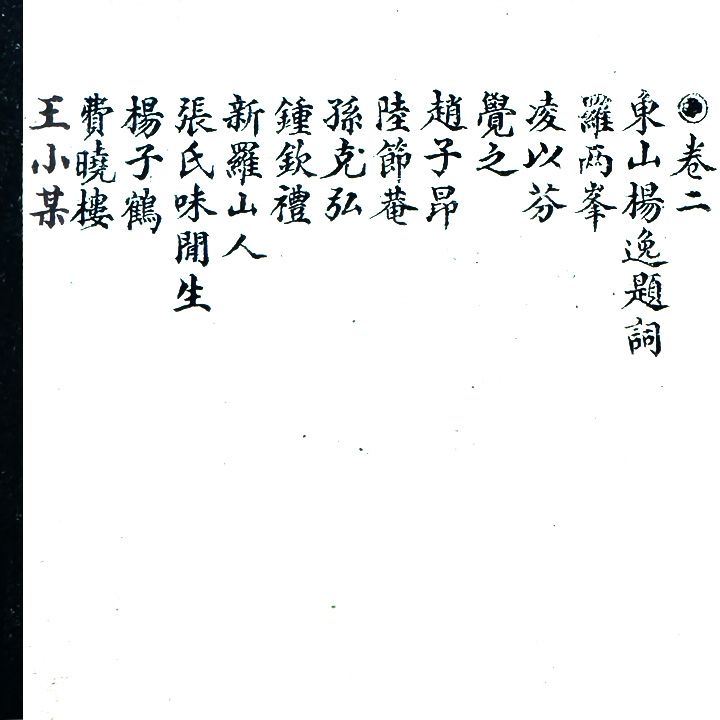 卷二
東山楊逸題詞
羅兩峯
凌以芬
覺之
趙子昂
陸節菴
孫克弘
鍾欽禮
新羅山人
張氏味閒生
楊子鶴
費曉樓
王小某